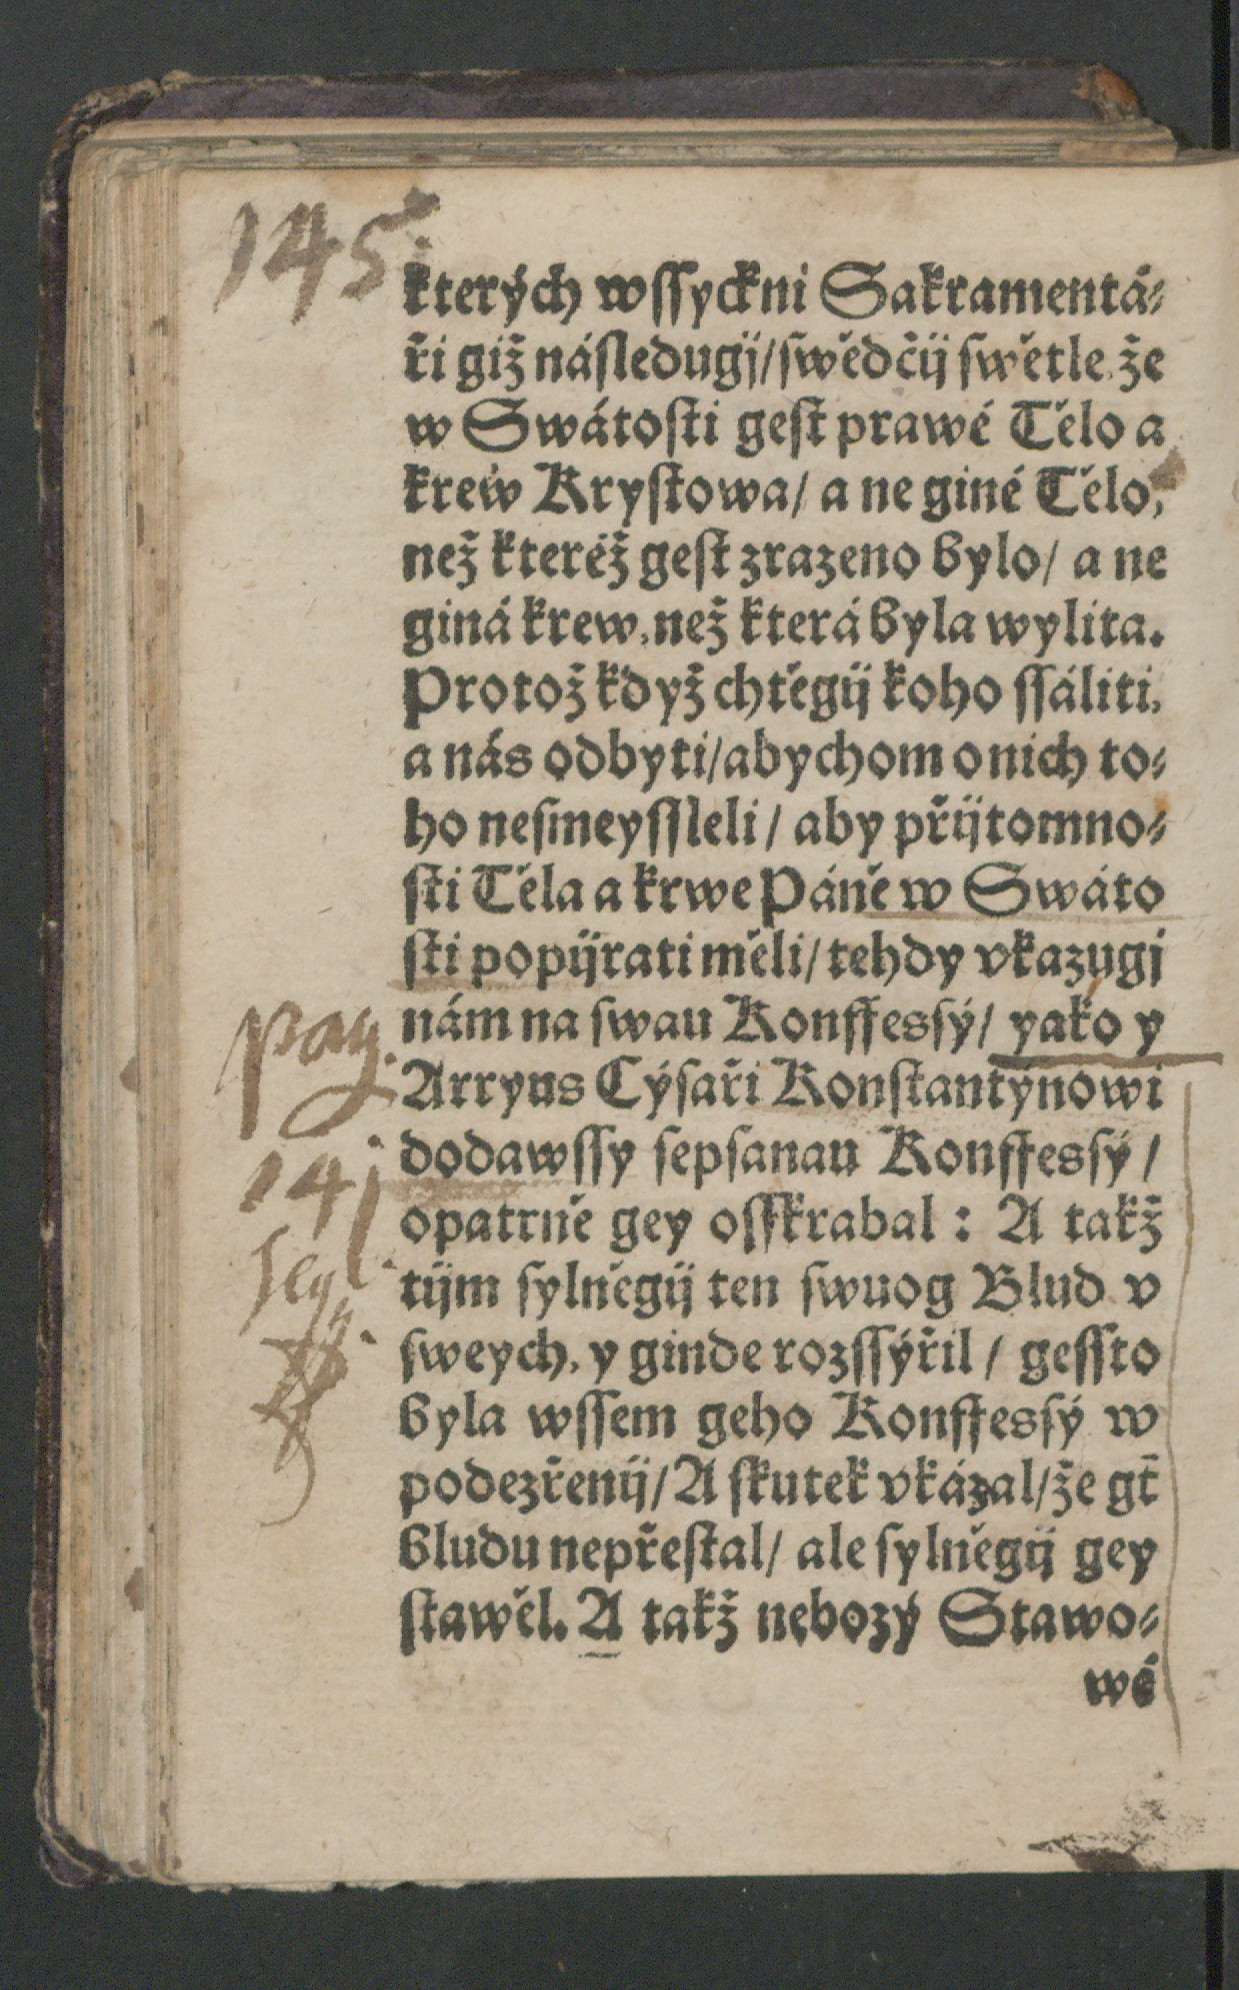 145
kterých wſſyckni Sakramentá⸗
ři giž náſledugj/ ſwědčij ſwětle, že
w Swátoſti geſt prawé Tělo a
krew Kryſtowa/ a ne giné Tělo,
než kteréž geſt zrazeno bylo/ a ne
giná krew, než která byla wylita.
Protož když chtěgij koho ſſáliti,
a nás odbyti/ abychom o nich to⸗
ho neſmeyſſleli/ aby přijtomno⸗
ſti Těla a krwe Páně w Swáto
ſti popijrati měli/ tehdy vkazugj
nám na ſwau Konffesſý/ yako y
Arryus Cýſaři Konſtantýnowi
dodawſſy ſepſanau Konffesſý/
opatrně gey oſſkrabal: A takž
tijm ſylněgij ten ſwuog Blud v
ſweych, y ginde rozſſýřil/ geſſto
byla wſſem geho Konffesſý w
podezřenij/ A ſkutek vkázal/ že gt̃
bludu nepřeſtal/ ale ſylněgij gey
ſtawěl. A takž nebozý Stawo⸗
wé
pag.
141